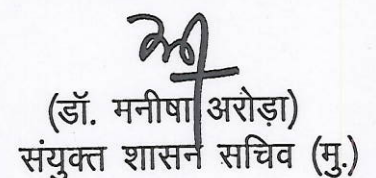 (डॉ. मनीषा अरोड़ा)
संयुक्त शासन सचिव (मु.)